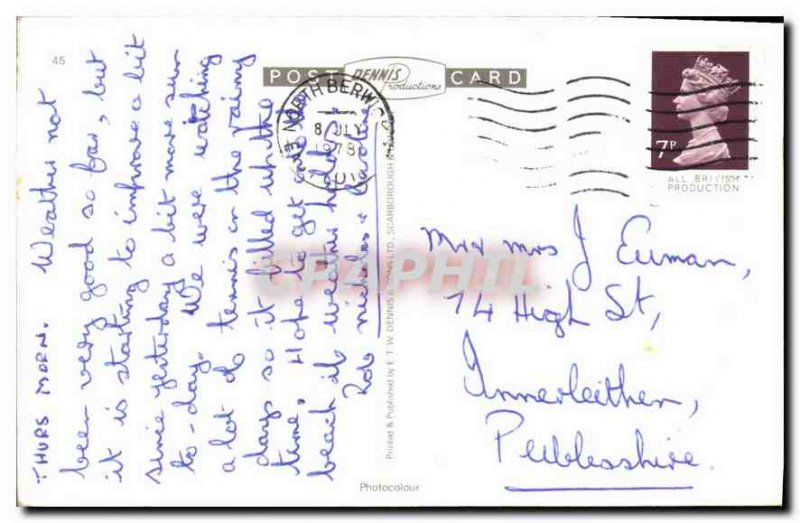 45
POST DENNIS Productions CARD
NORTH BERWICK
8 JLY
1978
7P
ALL BRITISH
PRODUCTION
THURS MORN. Weather not
been very good so far, but
it is starting to improve a bit
since yesterday a bit more sun
to-day. We were watching
a lot of tennis on the rainy
days so it filled up the
time. Hope to get on the
beach if weather holds up.
Rob Nicholas &
Printed & Published by E. T. W. DENNIS & SONS LTD., SCARBOROUGH
CPAPHIL
Mr & Mrs J Euman,
74 High St,
Innerleithen,
Peeblesshire.
Photocolour